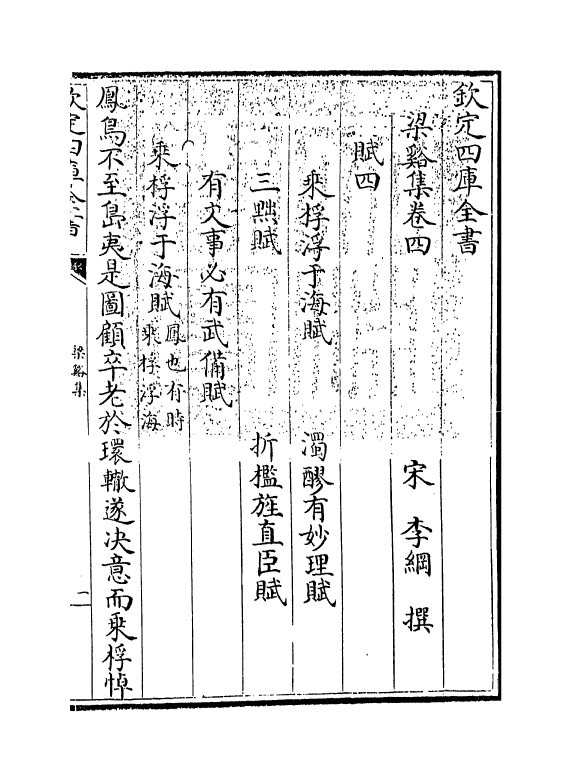 欽定四庫全書
梁谿集卷四
宋 李綱 撰
賦四
乘桴浮于海賦 濁醪有妙理賦
三黜賦 折檻旌直臣賦
有文事必有武備賦
乘桴浮于海賦 鳳也有時
乘桴浮海
鳳鳥不至島夷是圖顧卒老於環轍遂決意而乘桴悼
欽定四庫全書
梁谿集
一